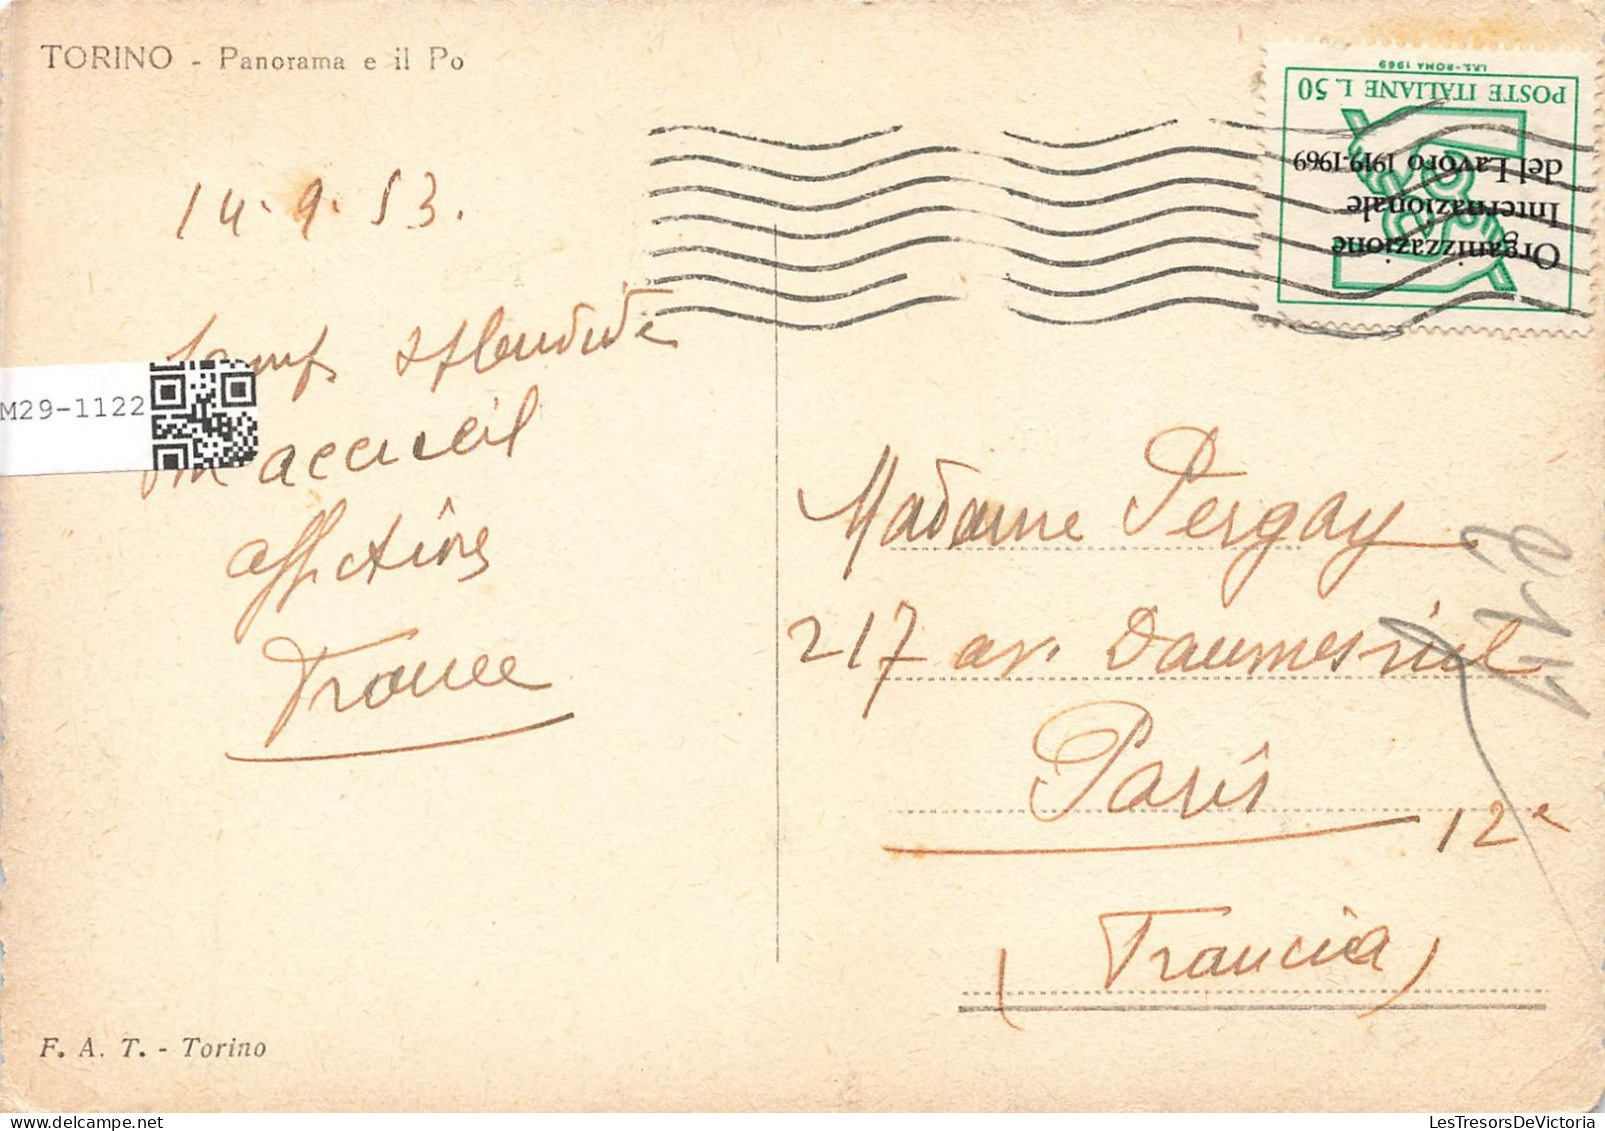 TORINO - Panorama e il Po
I.P.S. - ROMA 1969
POSTE ITALIANE L. 50
Organizzazione
Internazionale
del Lavoro 1919-1969
14.9.53.
temps splendide
M29-1122
accueil
France
Madame Pergay
217 av. Daumesnil
Paris
12e
(Francia)
F. A. T. - Torino
LesTresorsDeVictoria.com